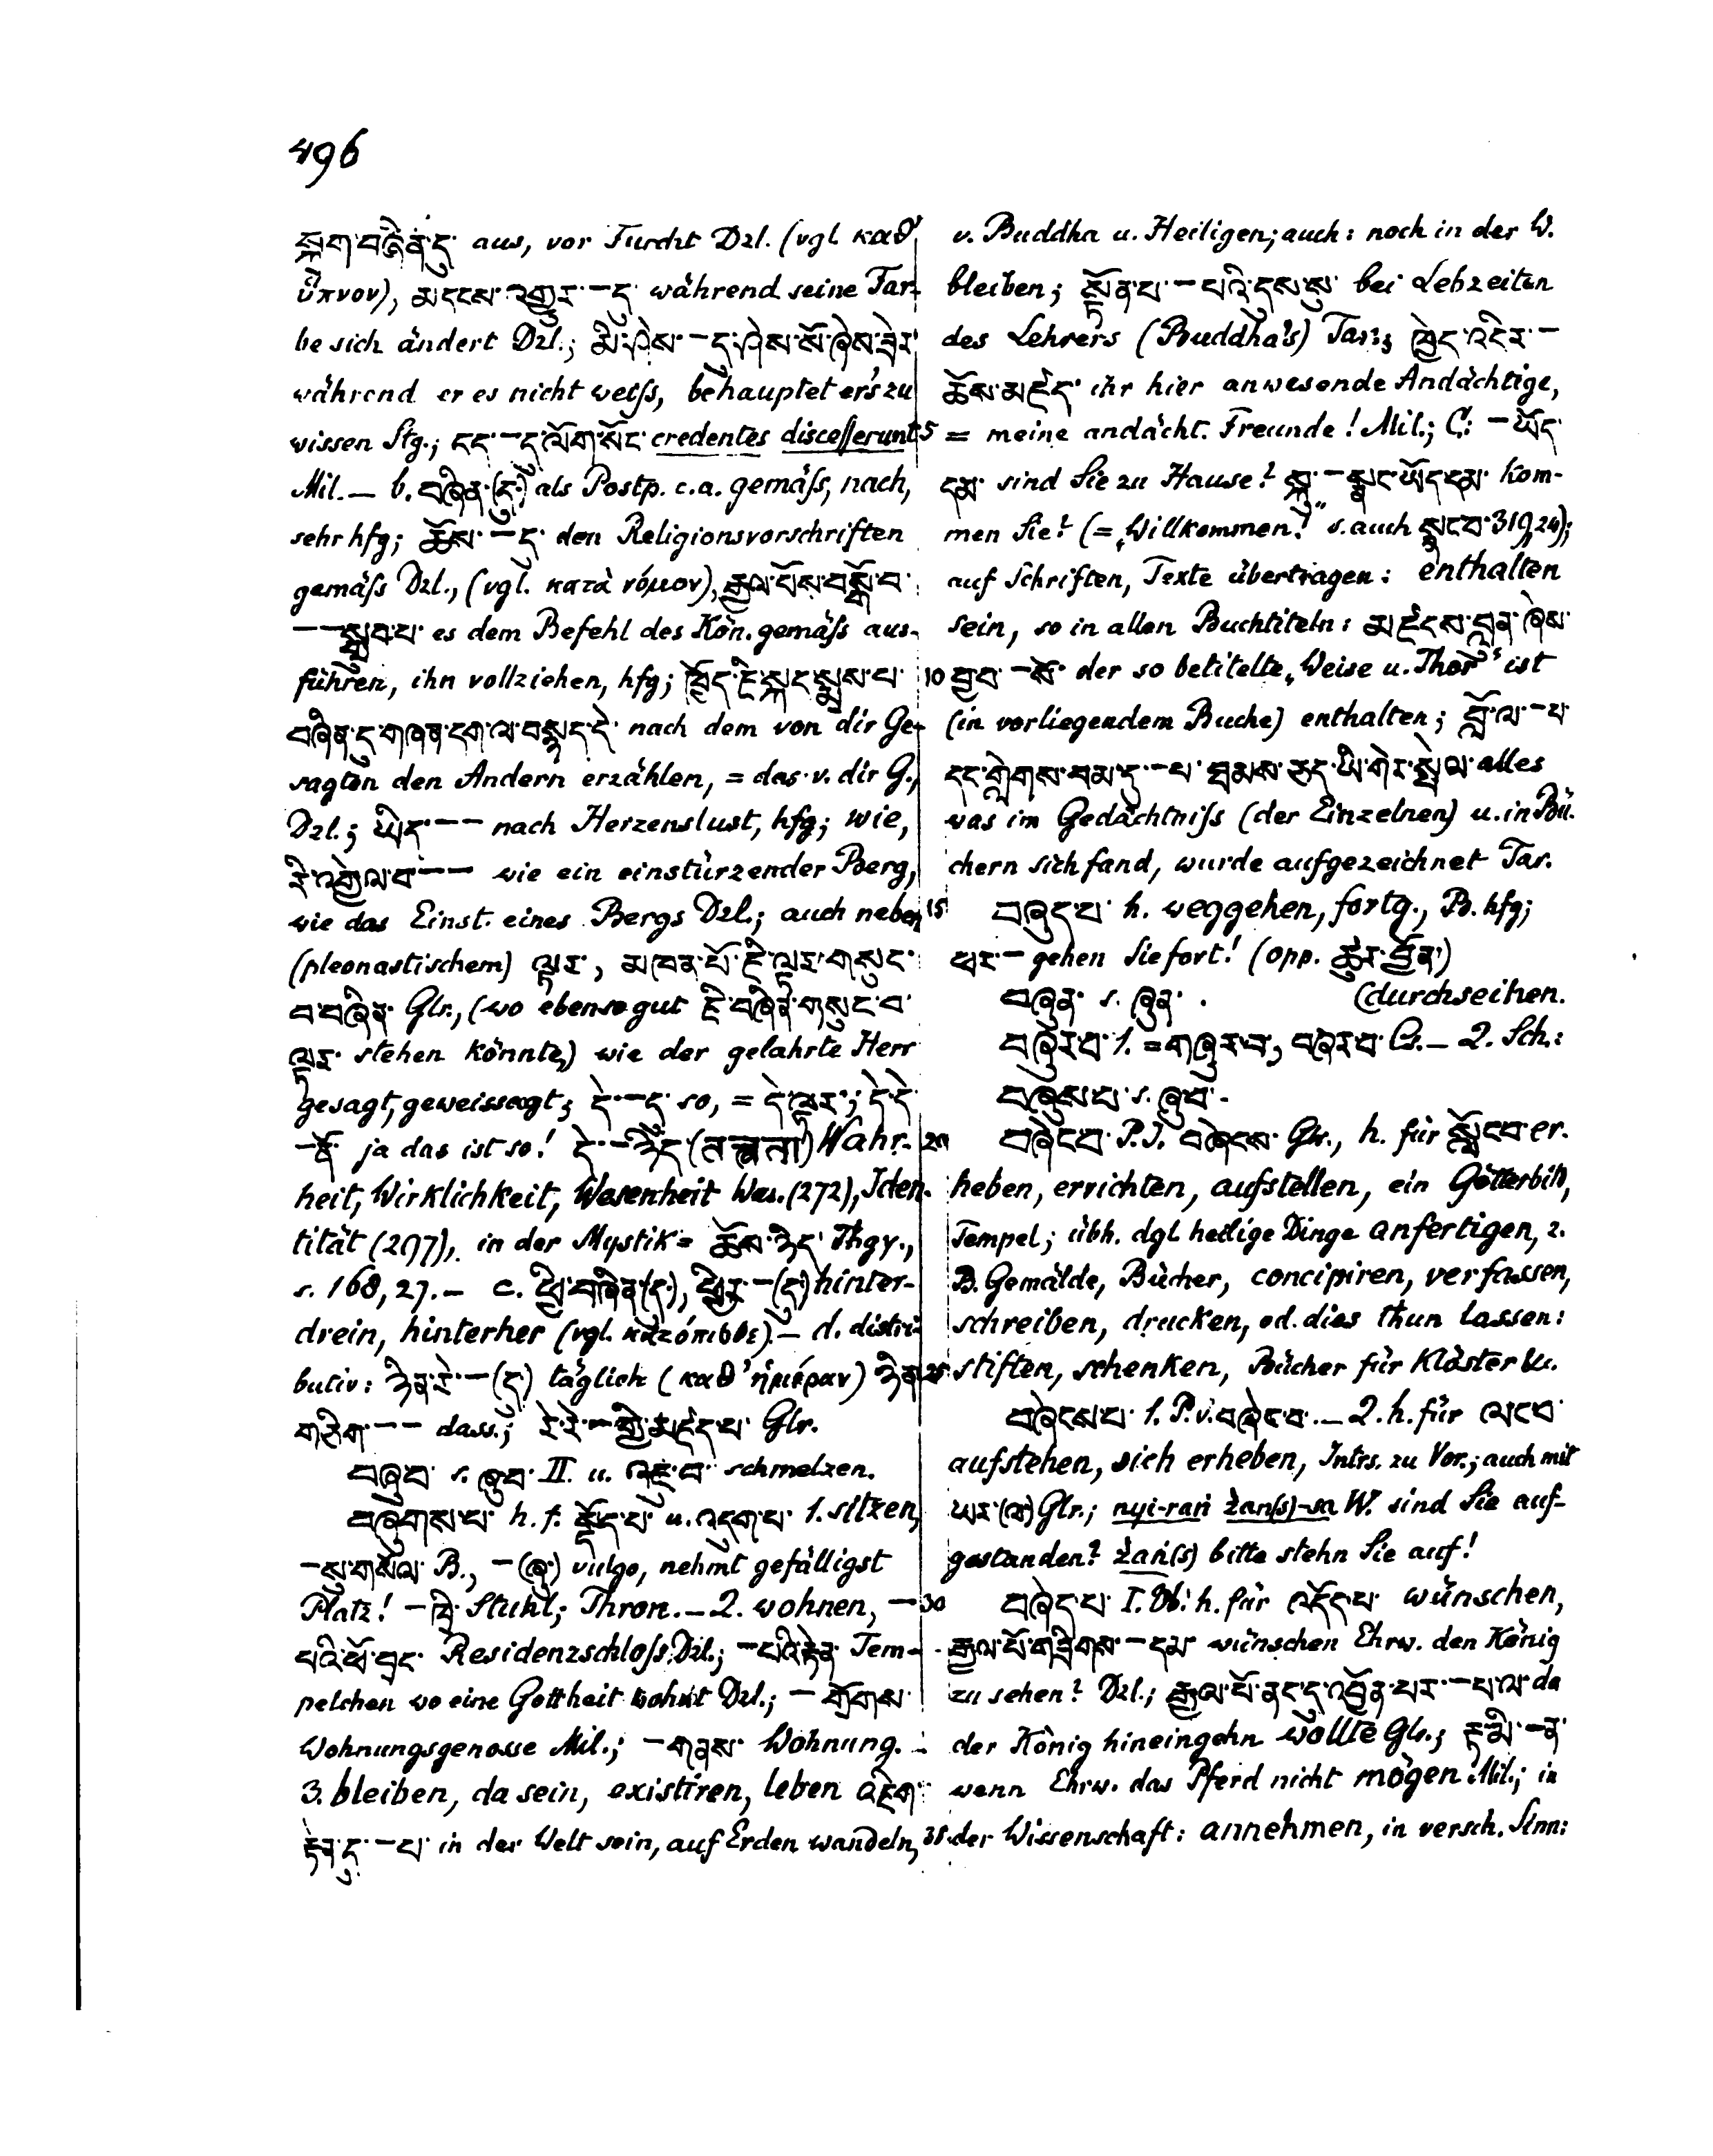 496
སྐྲག་བཞིན་དུ་ aus, vor Furcht Dzl. (vgl καθ'
ὕπνον), མདངས་འགྱུར་ — དུ་ während seine Far-
be sich ändert Dzl.; མི་ཤེས་ — དུ་ཤེས་སོ་ཞེས་ཟེར་
während er es nicht weiſs, behauptet er's zu
wissen Stg.; དད་ — དུ་ལོག་སོང་ credentes disceſserunt
Mil. — b. བཞིན་(དུ་) als Postp. c.a. gemäſs, nach,
sehr hfg; ཆོས་ — དུ་ den Religionsvorschriften
gemäſs Dzl., (vgl. κατὰ νόμον), རྒྱལ་པོས་བསྒོ་བ་
— — སྒྲུབ་པ་ es dem Befehl des Kön. gemäſs aus-
führen, ihn vollziehen, hfg; ཁྱོད་ཇི་སྐད་སྨྲས་པ་
བཞིན་དུ་གཞན་དག་ལ་བསྙད་དེ་ nach dem von dir Ge-
sagten den Andern erzählen, = das v. dir G.,
Dzl.; ཡིད་ — — nach Herzenslust, hfg; wie,
རི་འགྱེལ་བ་ — — wie ein einstürzender Berg,
wie das Einst. eines Bergs Dzl.; auch neben
(pleonastischem) ལྟར་, མཁན་པོ་ཇི་ལྟར་གསུང་
བ་བཞིན་ Glr., (wo ebenso gut ཇི་བཞིན་གསུང་བ་
ལྟར་ stehen könnte) wie der gelahrte Herr
gesagt, geweissagt; དེ་ — དུ་ so, = དེ་ལྟར་; དེ་དེ་
— ནོ་ ja das ist so! དེ་ — ཉིད་ Wahr-
heit, Wirklichkeit, Wesenheit Was. (272), Iden-
tität (297), in der Mystik = ཆོས་ཉིད་ Thgy.,
s. 168, 27. — c. ཕྱི་བཞིན་(དུ་), ཕྱིར་ — (དུ་) hinter-
drein, hinterher (vgl. κατόπισθε). — d. distri-
butiv: ཉིན་རེ་ — (དུ་) täglich (καθ' ἡμέραν) ཉིན་
གཅིག་ — — dass.; རེ་རེ་ — གྱི་མཛད་པ་ Glr.
བཞུ་བ་ s. ཞུ་བ་ II. u. འཇུ་བ་ schmelzen.
བཞུགས་པ་ h. f. སྡོད་པ་ u. འདུག་པ་ 1. sitzen,
— སུ་གསོལ་ B., — (ཞུ་) vulgo, nehmt gefälligst
Platz! — ཁྲི་ Stuhl; Thron. — 2. wohnen, —
པའི་ཕོ་བྲང་ Residenzschloſs Dzl.; — པའི་རྟེན་ Tem-
pelchen wo eine Gottheit wohnt Dzl.; — གྲོགས་
Wohnungsgenosse Mil.; — གནས་ Wohnung.
3. bleiben, da sein, existiren, leben འཇིག་
རྟེན་དུ་ — པ་ in der Welt sein, auf Erden wandeln,
v. Buddha u. Heiligen; auch: noch in der W.
bleiben; སྟོན་པ་ — པའི་དུས་སུ་ bei Lebzeiten
des Lehrers (Buddha's) Tar.; ཁྱེད་འདིར་ —
5 ཆོས་མཛད་ ihr hier anwesende Andächtige,
= meine andächt. Freunde! Mil.; C.: — ཡོད་
དམ་ sind Sie zu Hause? སྐུ་ — སྣང་ཡོད་དམ་ kom-
men Sie? (= „Willkommen!" s. auch སྣང་བ་ 319, 24);
auf Schriften, Texte übertragen: enthalten
sein, so in allen Buchtiteln: མཛངས་བླུན་ཞེས་
10 བྱ་བ་ — སོ་ der so betitelte „Weise u. Thor" ist
(in vorliegendem Buche) enthalten; བློ་ལ་ — པ་
དང་གླེགས་བམ་དུ་ — པ་ཐམས་ཅད་ཡི་གེར་སྤེལ་ alles
was im Gedächtniſs (der Einzelnen) u. in Bü-
chern sich fand, wurde aufgezeichnet Tar.
15 བཞུད་པ་ h. weggehen, fortg., B. hfg;
ཕར་ — gehen Sie fort! (opp. ཚུར་བྱོན་)
བཞུན་ s. ཞུན་. (durchseihen.
བཞུར་བ་ 1. = གཞུར་བ་, བཞར་བ་ Cs. — 2. Sch.:
བཞུས་པ་ s. ཞུ་བ་.
20 བཞེང་བ་ P.I. བཞེངས་ Glr., h. für སློང་བ་ er-
heben, errichten, aufstellen, ein Götterbild,
Tempel; übh. dgl heilige Dinge anfertigen, z.
B. Gemälde, Bücher, concipiren, verfassen,
schreiben, drucken, od. dies thun lassen:
25 stiften, schenken, Bücher für Klöster &c.
བཞེངས་པ་ 1. P. v. བཞེང་བ་. — 2. h. für ལང་བ་
aufstehen, sich erheben, Intrs. zu Vor.; auch mit
ཡར་(ལ་) Glr.; nyi-raṅ žaṅ(s)-sa W. sind Sie auf-
gestanden? žaṅ(s) bitte stehn Sie auf!
30 བཞེད་པ་ I. Vb. h. für འདོད་པ་ wünschen,
རྒྱལ་པོ་གཟིགས་ — དམ་ wünschen Ehrw. den König
zu sehen? Dzl.; རྒྱལ་པོ་ནང་དུ་འབྱོན་པར་ — པ་ལ་ da
der König hineingehn wollte Glr.; རྟ་མི་ — ན་
wenn Ehrw. das Pferd nicht mögen Mil.; in
35 der Wissenschaft: annehmen, in versch. Sinn: